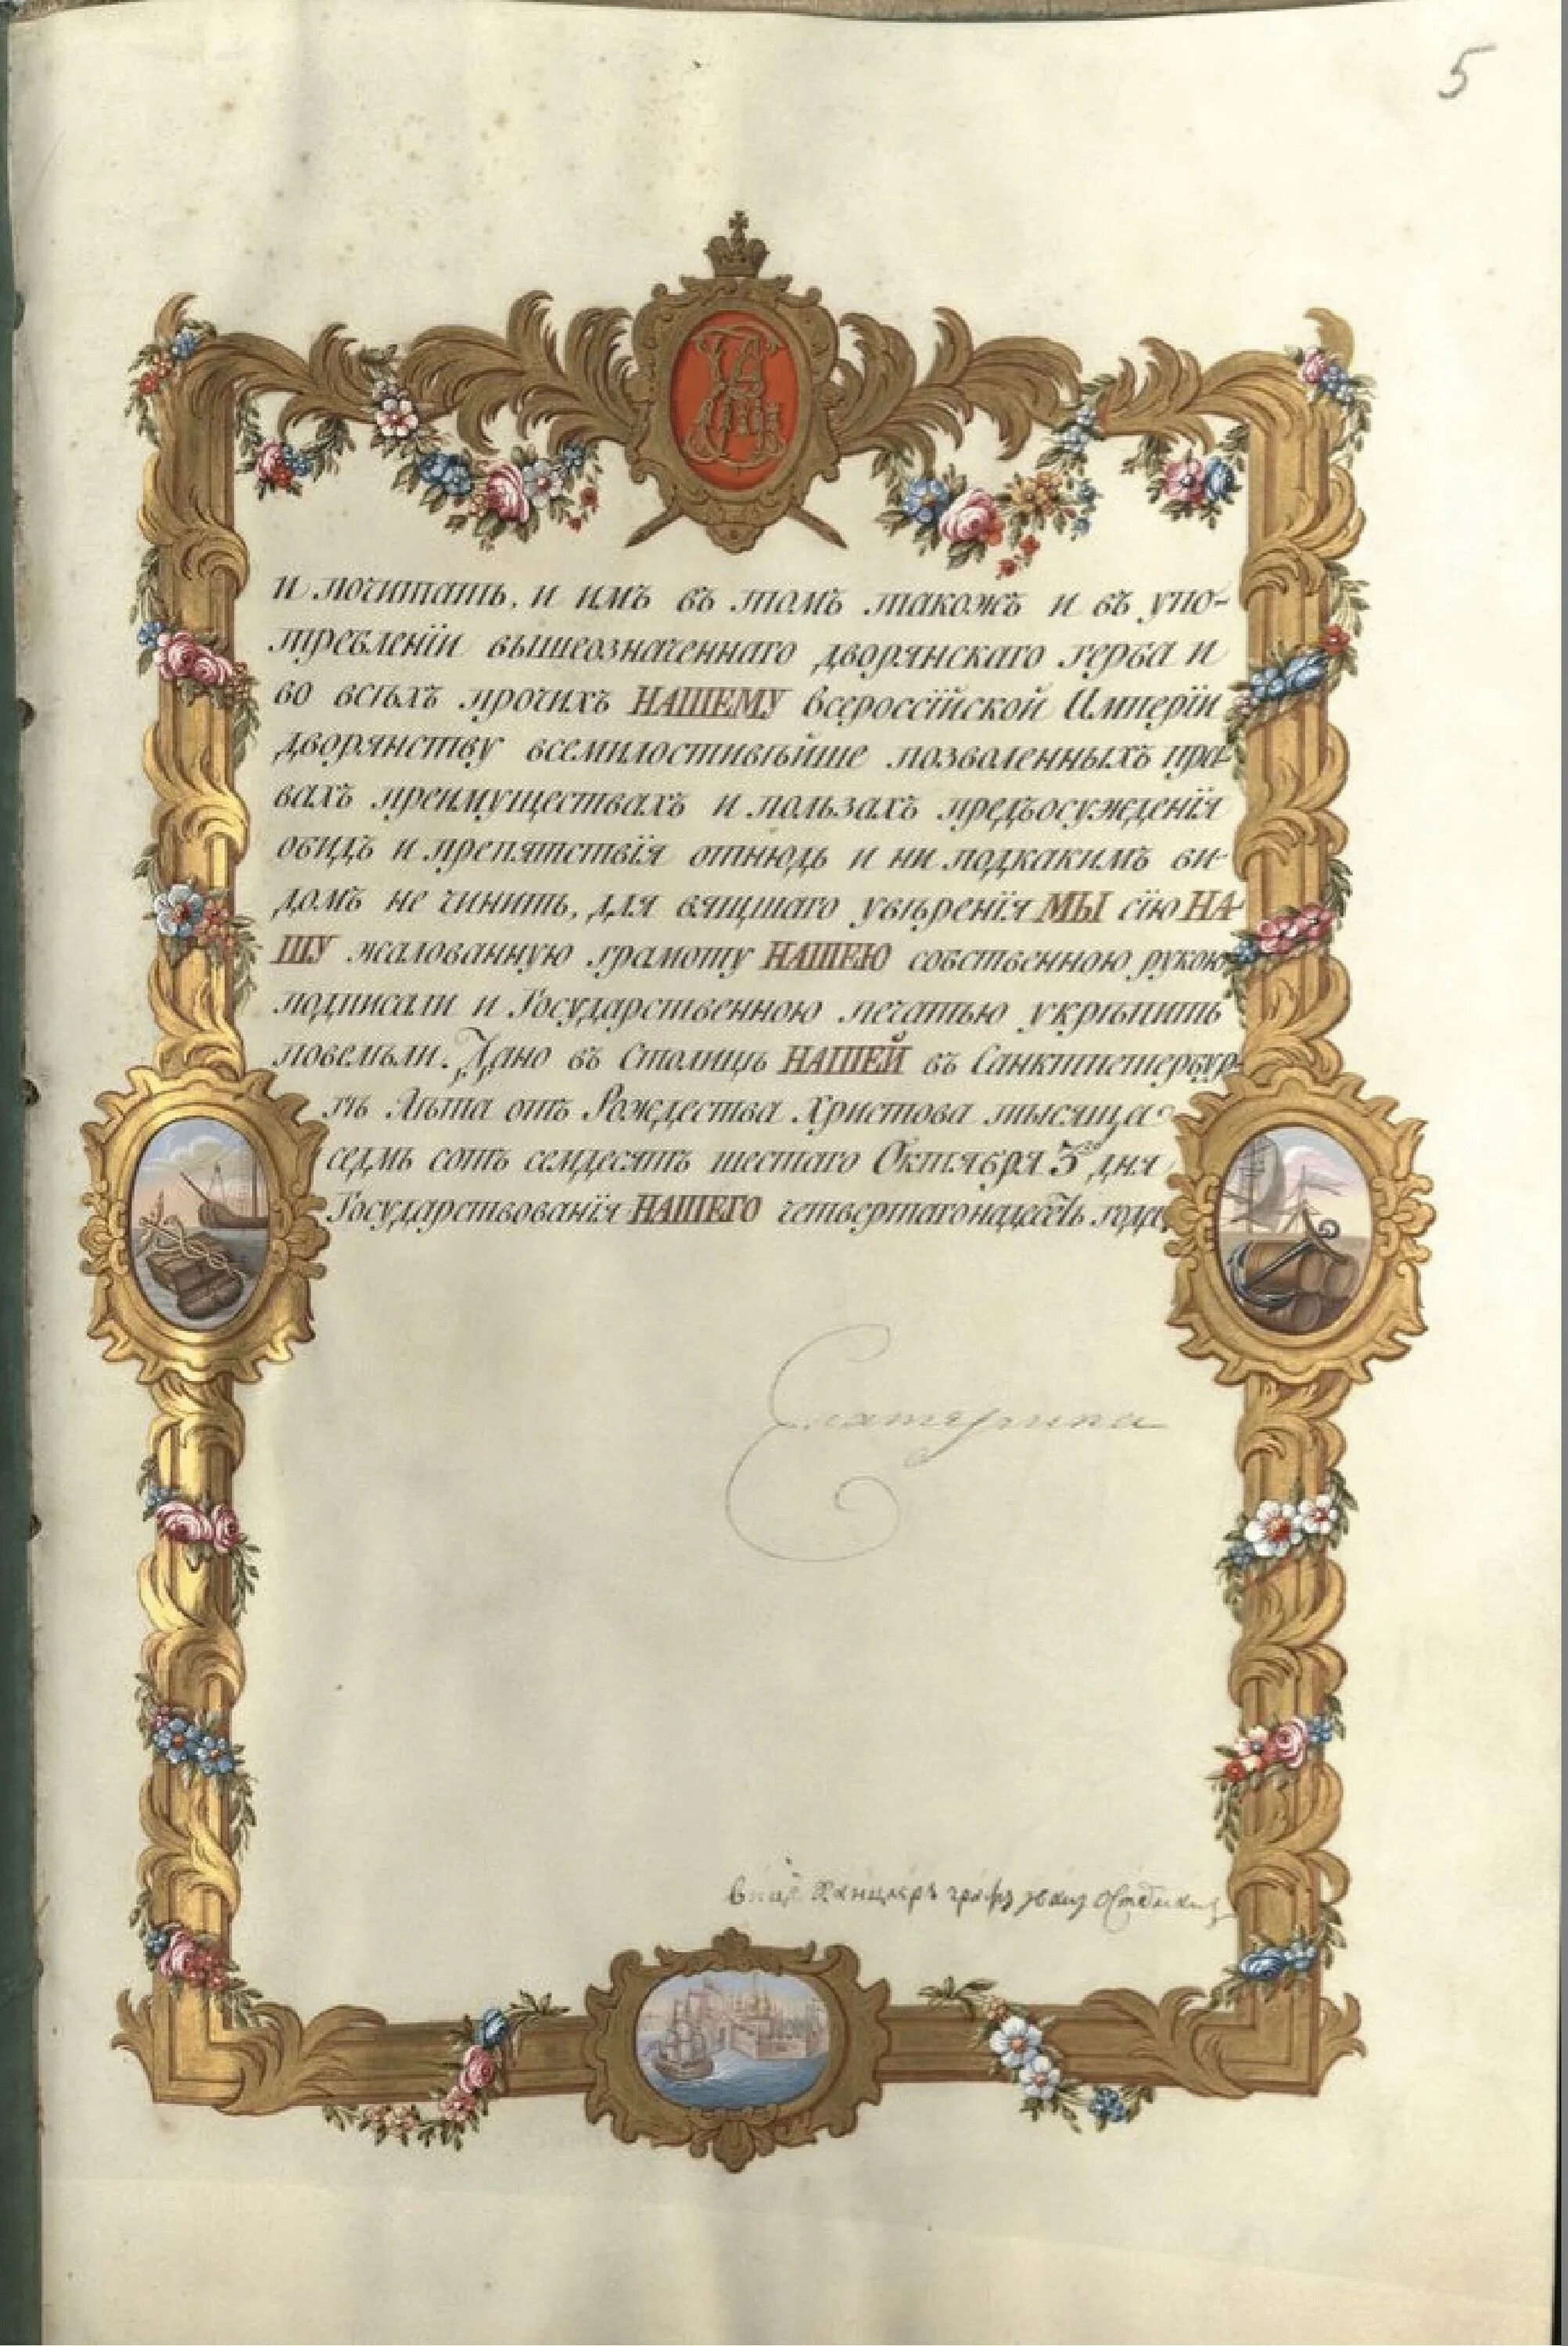 5
и почитать, и имъ въ томъ такожъ и въ упо-
требленїи вышеозначеннаго дворянскаго герба и
во всѣхъ прочихъ НАШЕМУ всероссїйской Имперїи
дворянству всемилостивѣйше позволенныхъ пра-
вахъ преимуществахъ и пользахъ предъосужденїя
обидъ и препятствїя отнюдь и ни подкакимъ ви-
домъ не чинить, для вящшаго увѣренїя МЫ сїю НА-
ШУ жалованную грамоту НАШЕЮ собственною рукою
подписали и Государственною печатью укрѣпить
повелѣли. Дано въ Столицѣ НАШЕЙ въ Санктпетербур-
гѣ Лѣта отъ Рождества Христова тысяща
седмь сотъ семдесятъ шестаго Октября 3го дня
Государствованїя НАШЕГО четвертагонадесять года
Екатерина
Вице Канцлеръ графъ Иванъ Остерманъ